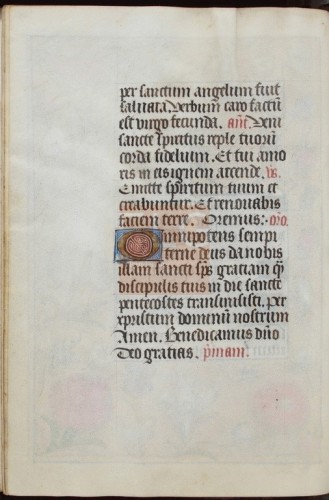 per sanctum angelum fuit
saluata. Verbum caro factū
est virgo fecunda. añt. Veni
sancte spiritus reple tuorū
corda fidelium. Et tui amo
ris in eis ignem accende. vs.
Emitte spiritum tuum et
creabuntur. Et renouabis
faciem terre. Oremus:· oro.
Omnipotens sempi
terne deus da nobis
illam sancti sp̄s gratiam quā
discipulis tuis in die sancte
penthecostes transmisisti. per
xpristum dominū nostrum
Amen. Benedicamus dño
Deo gratias.